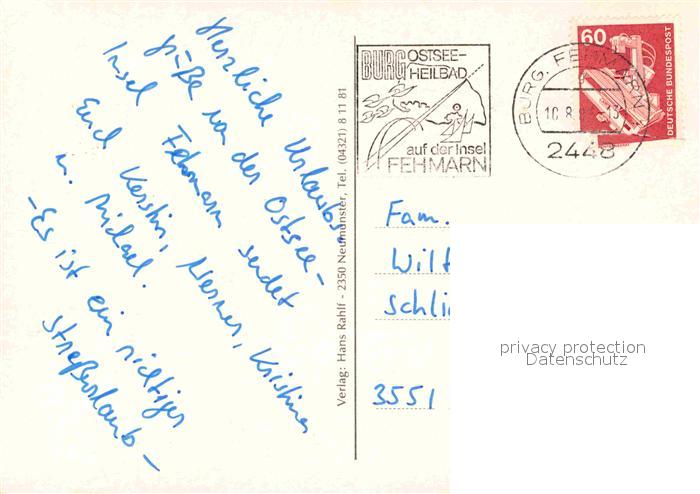 Herzliche Urlaubs-
grüße von der Ostsee-
Insel Fehmarn sendet
Euch Kerstin, Werner, Kristina
u. Michael.
- Es ist ein richtiger
Streßurlaub -
Verlag: Hans Rahlf - 2350 Neumünster, Tel. (04321) 8 11 81
BURG OSTSEE-
HEILBAD
auf der Insel
FEHMARN
BURG, FEHMARN
10.8.
2448
60
DEUTSCHE BUNDESPOST
Fam.
3551
privacy protection
Datenschutz